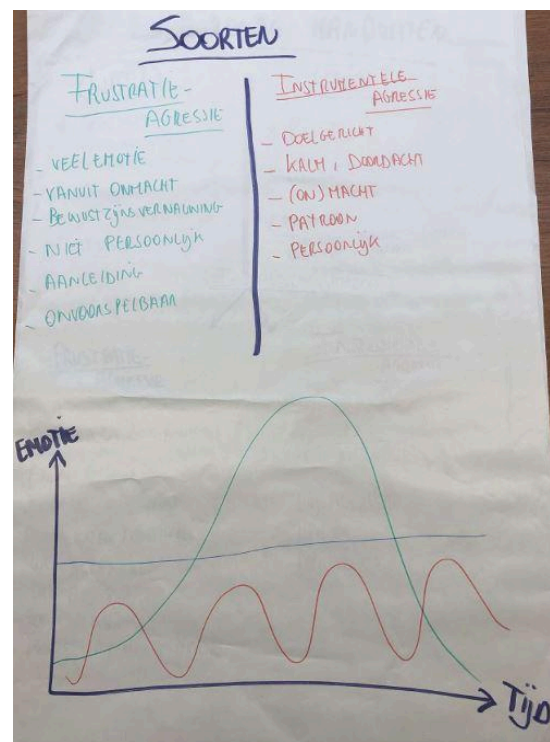 SOORTEN
FRUSTRATIE-
AGRESSIE
- VEEL EMOTIE
- VANUIT ONMACHT
- BEWUSTZIJNSVERNAUWING
- NIET PERSOONLIJK
- AANLEIDING
- ONVOORSPELBAAR
INSTRUMENTELE
AGRESSIE
- DOELGERICHT
- KALM, DOORDACHT
- (ON)MACHT
- PATROON
- PERSOONLIJK
EMOTIE
TIJD